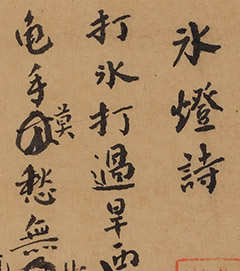 氷燈詩
打氷打過旱西
龟手莫愁無